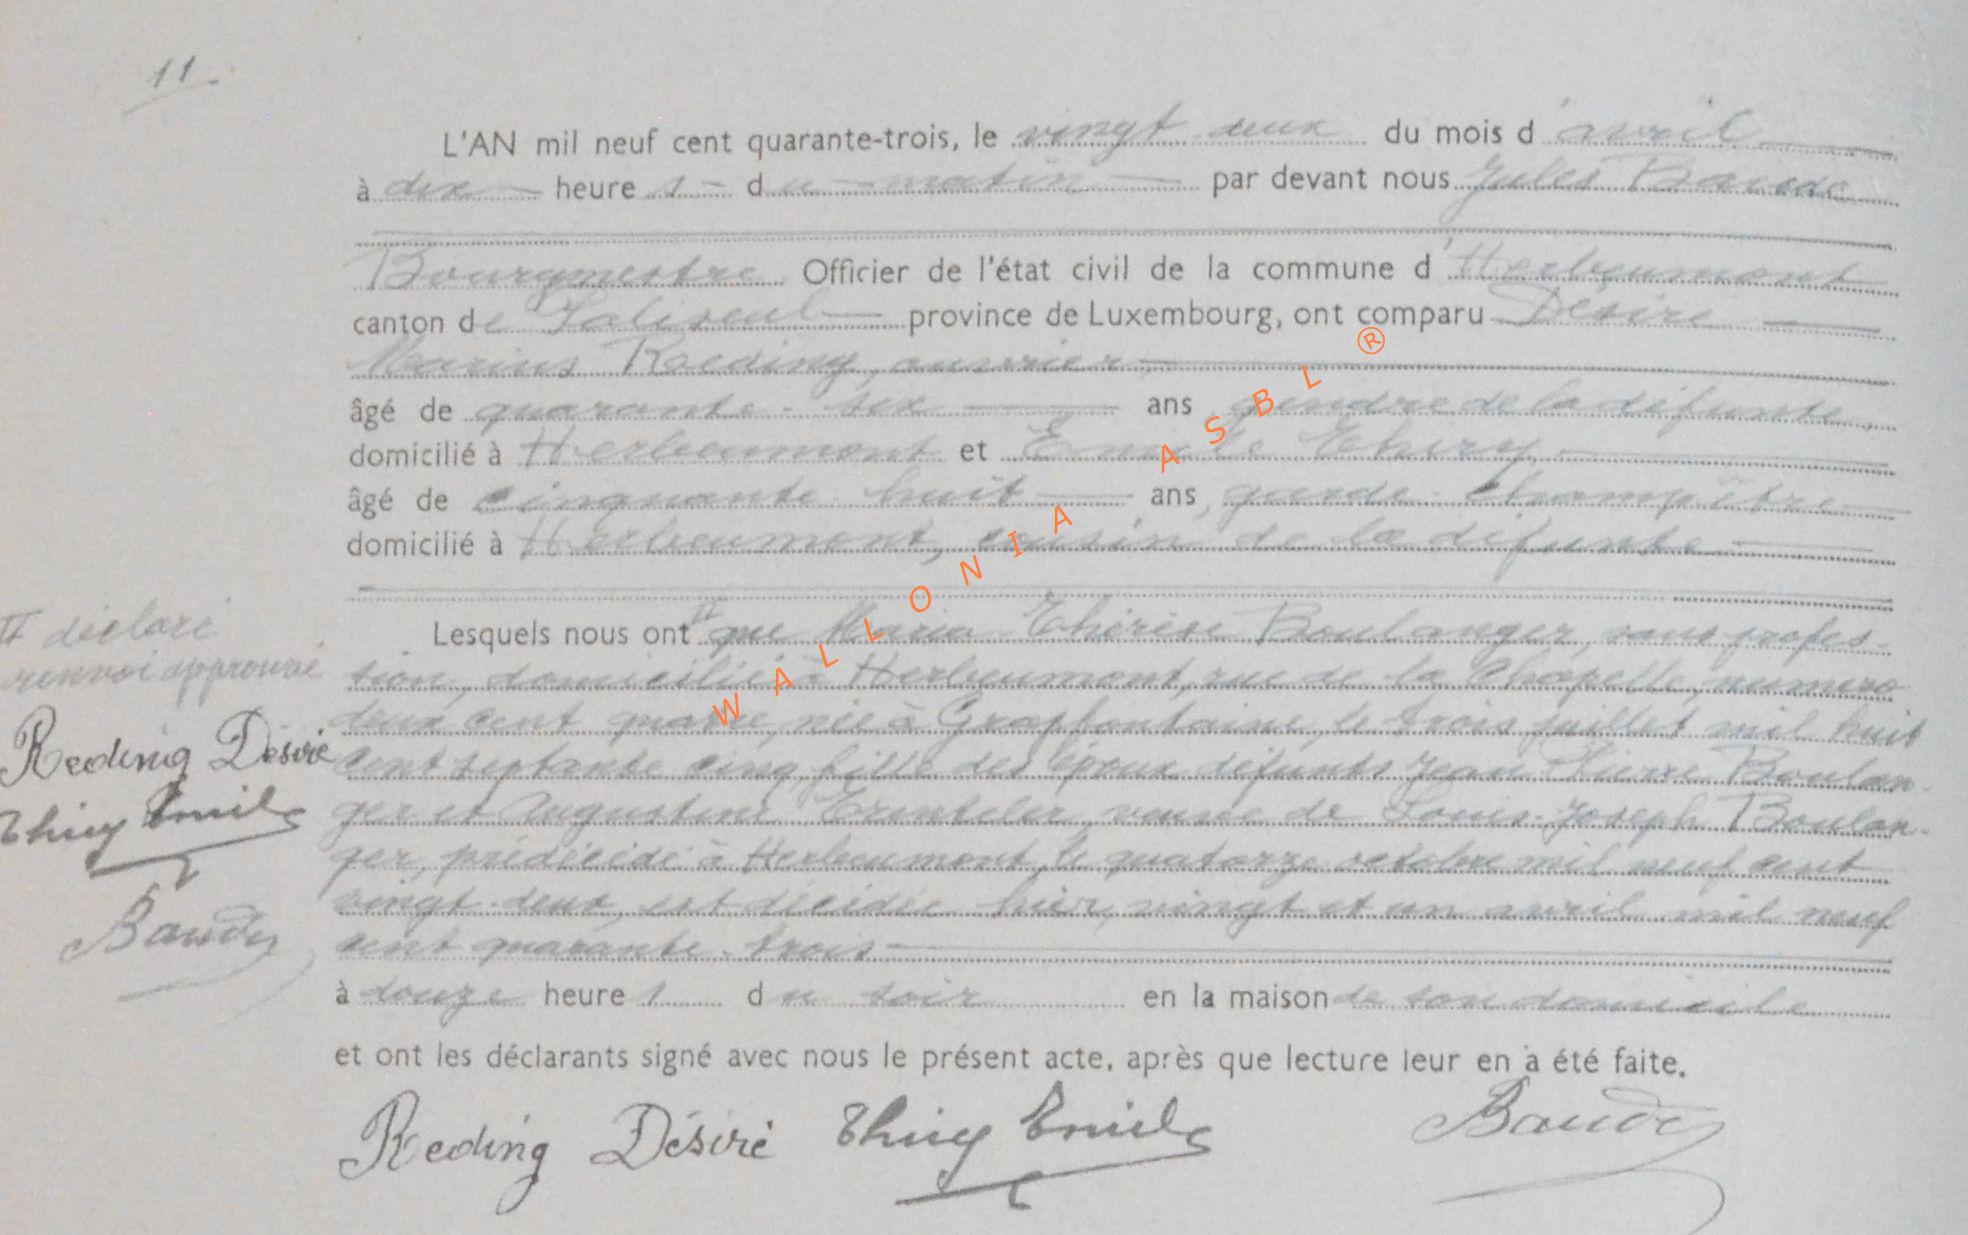 11.
L'AN mil neuf cent quarante-trois, le vingt deux du mois d'avril
à dix heures du matin par devant nous Jules Baude
Bourgmestre Officier de l'état civil de la commune d'Herbeumont
canton de Paliseul province de Luxembourg, ont comparu Désiré
Marius Roeding, ouvrier,
âgé de quarante-six ans gendre de la défunte,
domicilié à Herbeumont et Emile Thiry
âgé de cinquante huit ans, garde-champêtre
domicilié à Herbeumont, cousin de la défunte
Lesquels nous ont que Maria Thérèse Boulanger, sans profes-
sion, domiciliée à Herbeumont, rue de la Chapelle, numero
deux cent née à Grapfontaine, le trois juillet mil huit
cent septante cinq, fille des époux défunts Jean Pierre Boulan-
ger et Augustine veuve de Louis-Joseph Boulan-
ger, prédécédé à Herbeumont, le quatorze octobre mil neuf cent
vingt-deux, est décédée hier, vingt et un avril mil neuf
cent quarante-trois
à douze heures du soir en la maison de son domicile
et ont les déclarants signé avec nous le présent acte, après que lecture leur en a été faite.
Reding Désiré Thiry Emile Baude
II déclaré
renvoi approuvé
Reding Désiré
Thiry Emile
Baude
WALLONIA ASBL ®